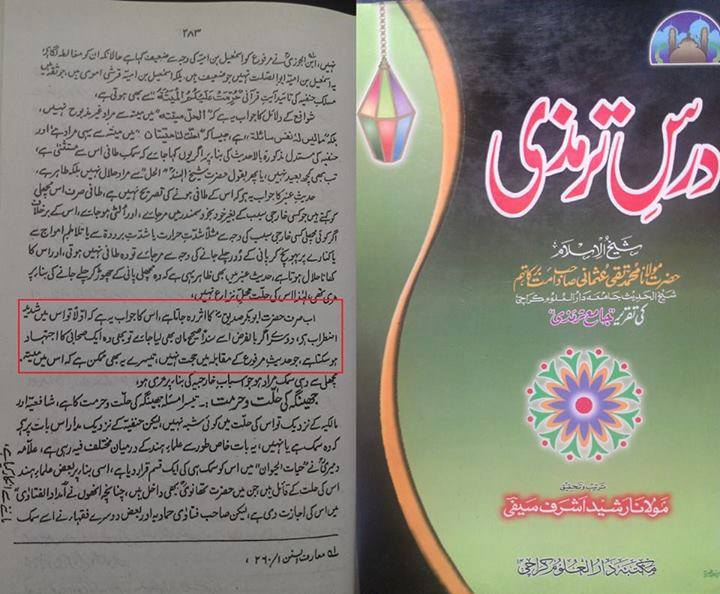 ۲۸۳
نہیں، ابن الجوزیؒ نے مرفوع کو اسمٰعیل بن امیہ کی وجہ سے ضعیف کہا ہے حالانکہ ان کو مغالطہ لگا کہ
یہ اسمٰعیل بن امیہ ابوالصلت نہیں جو ضعیف ہیں، بلکہ اسمٰعیل بن امیہ قرشی اموی ہیں، جو ثقہ ہیں
مسلک حنفیہ کی تائید آیت قرآنی حُرِّمَتْ عَلَیْکُمُ الْمَیْتَۃُ سے بھی ہوتی ہے،
شوافع کے دلائل کا جواب یہ ہے کہ "الحل میتتہ" میں میتہ سے مراد غیر مذبوح نہیں،
بلکہ "مالیس لہ نفس سائلۃ" ہے، جیسا کہ "احلت لنا میتتان" میں میتہ سے یہی مراد ہے اور
حنفیہ کی مستدل مذکورہ بالا حدیث کی بناء پر اگر یوں کہا جائے کہ سمک طافی اس سے مستثنیٰ ہے،
تب بھی کچھ بعید نہیں، یا پھر بقول حضرت شیخ الہندؒ "الحل" سے مراد حلال نہیں بلکہ طاہر ہے،
حدیث عنبر کا جواب یہ ہے کہ اس کے طافی ہونے کی تصریح نہیں ہے، طافی صرف اس مچھلی
کو کہتے ہیں جو کسی خارجی سبب کے بغیر خود بخود سمندر میں مر جائے، اور الٹی ہو جائے، اس کے برخلاف
اگر کوئی مچھلی کسی خارجی سبب کی وجہ سے مثلاً شدتِ حرارت یا شدتِ برودت سے یا تلاطمِ امواج سے
یا کنارے پر پہونچ کر پانی کے دُور چلے جانے کی وجہ سے مر جائے تو وہ طافی نہیں ہوتی، اور اس کا
کھانا حلال ہوتا ہے، حدیث عنبر میں بھی ظاہر یہی ہے کہ وہ مچھلی پانی کے چھوڑ کر چلے جانے کی بناء پر
مری تھی، لہٰذا اس کی حلت محل نزاع نہیں،
اب صرف حضرت ابوبکر صدیقؓ کا اثر رہ جاتا ہے، اس کا جواب یہ ہے کہ اوّلاً تو اس میں شدید
اضطراب ہے، دوسرے اگر بالفرض اسے سنداً صحیح مان بھی لیا جائے تو بھی وہ ایک صحابی کا اجتہاد
ہو سکتا ہے، جو حدیثِ مرفوع کے مقابلہ میں حجت نہیں، تیسرے یہ بھی ممکن ہے کہ اس میں میتہ
مچھلی سے وہی سمک مراد ہو جو اسباب خارجیہ کی بناء پر مری ہو،
جھینگہ کی حلت و حرمت: تیسرا مسئلہ جھینگہ کی حلت و حرمت کا ہے، شافعیہ اور
مالکیہ کے نزدیک تو اس کی حلت میں کوئی شبہ نہیں، لیکن حنفیہ کے نزدیک مدار اس بات پر ہے
کہ وہ سمک ہے یا نہیں، یہ بات خاص طور سے علماء ہند کے درمیان مختلف فیہ رہی ہے، علامہ
دمیریؒ نے "حیات الحیوان" میں اس کو سمک ہی کی ایک قسم قرار دیا ہے، اسی بناء پر بعض علماء ہند
اس کی حلت کے قائل ہیں جن میں حضرت تھانویؒ بھی داخل ہیں، چنانچہ انھوں نے "امداد الفتاویٰ"
میں اس کی اجازت دی ہے، لیکن صاحب فتاویٰ حمادیہ اور بعض دوسرے فقہاء نے اسے سمک
لہ معارف السنن ۱/ ۲۶۰ ،
درسِ ترمذی
شیخ الاسلام
حضرت مولانا محمد تقی عثمانی صاحب دامت برکاتہم
شیخ الحدیث جامعہ دارالعلوم کراچی
کی تقریر "جامع ترمذی"
ترتیب و تحقیق
مولانا رشید اشرف سیفی
مکتبہ دارالعلوم کراچی